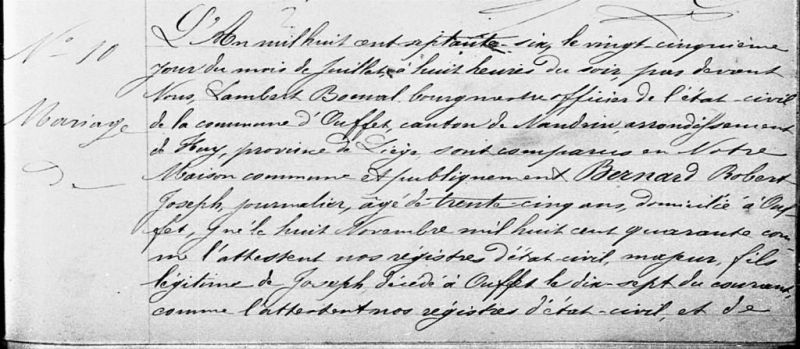 N° 10
Mariage
De
L'An mil huit cent septante-six, le vingt-cinquième
jour du mois de Juillet, à huit heures du soir, par devant
Nous, Lambert Bomal bourgmestre officier de l'état-civil
de la commune d'Ouffet, canton de Nandrin, arrondissement
de Huy, province de Liège sont comparus en Notre
Maison commune et publiquement Bernard Robert
Joseph, journalier, âgé de trente-cinq ans, domicilié à Ouf-
fet, y né le huit Novembre mil huit cent quarante com-
me l'attestent nos régistres d'état-civil, majeur, fils
légitime de Joseph décédé à Ouffet le dix-sept du courant,
comme l'attestent nos régistres d'état-civil, et de